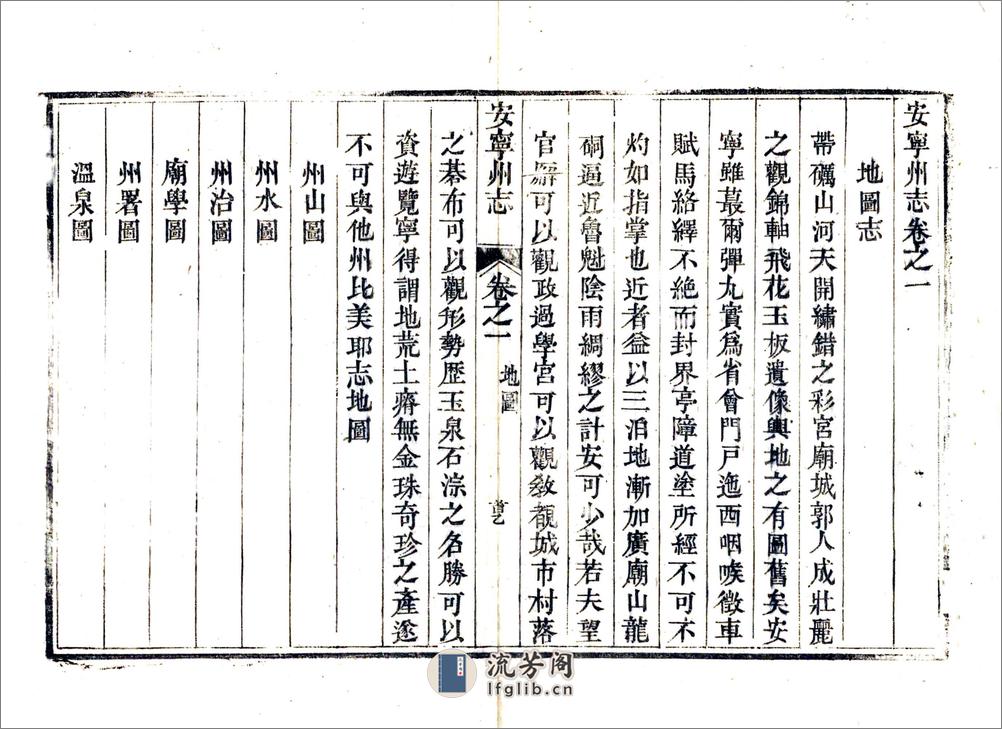 安寧州志卷之一
地圖志
帶礪山河天開繡錯之彩宮廟城郭人成壯麗
之觀錦軸飛花玉板遺像輿地之有圖舊矣安
寧雖蕞爾彈丸實爲省會門戸迤西咽喉徵車
賦馬絡繹不絶而封界亭障道塗所經不可不
灼如指掌也近者益以三泊地漸加廣廟山龍
硐逼近魯魁陰雨綢繆之計安可少哉若夫望
官廨可以觀政過學宮可以觀敎覩城市村落
安寧州志 卷之一 地圖
之碁布可以觀形勢歷玉泉石淙之名勝可以
資遊覽寧得謂地荒土瘠無金珠奇珍之產遂
不可與他州比美耶志地圖
州山圖
州水圖
州治圖
廟學圖
州署圖
溫泉圖
流芳阁
lfglib.cn